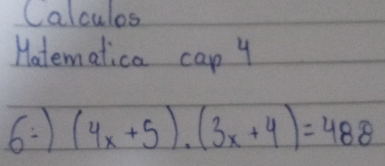 Calculos
Matematica cap 4
6-) (4x+5).(3x+4)=488